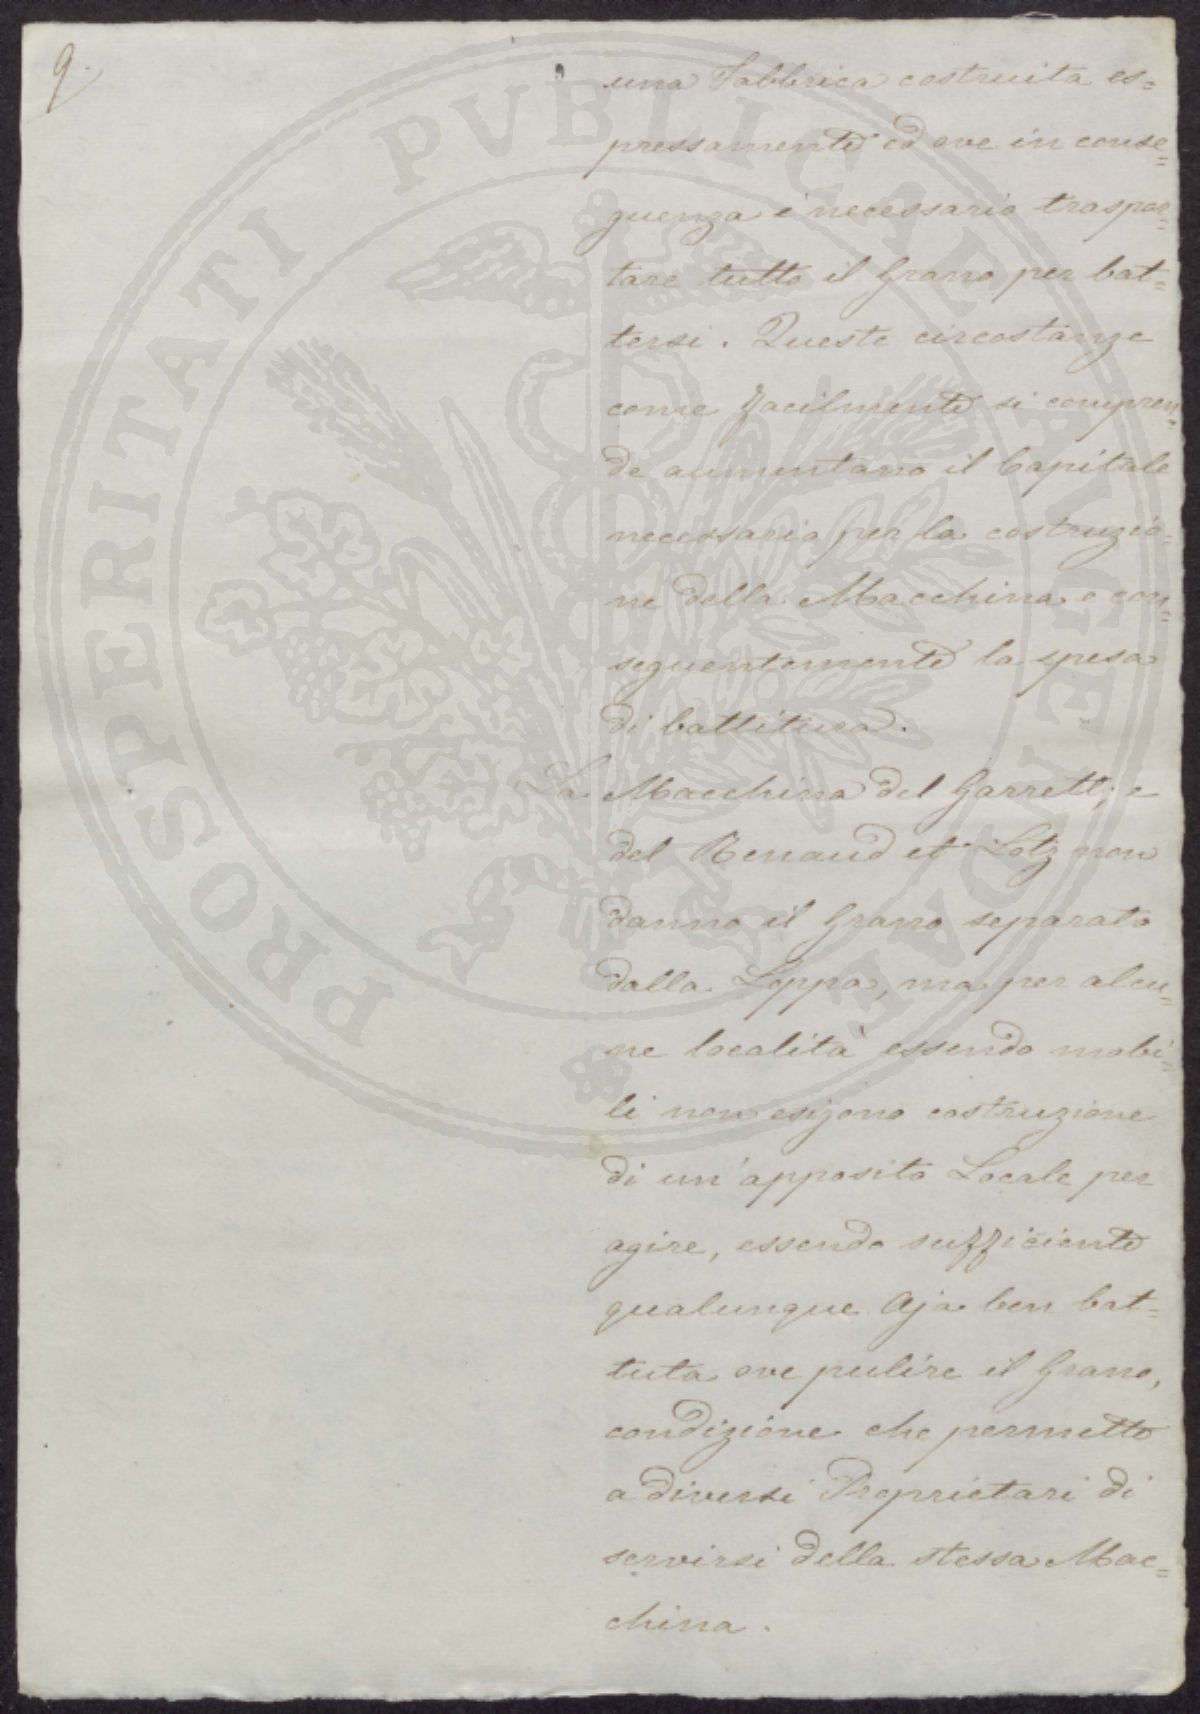 9.
una Fabbrica costruita es=
pressamente ed ove in conse=
guenza è necessario traspor=
tare tutto il Grano per bat=
tersi. Queste circostanze
come facilmente si compren=
de aumentano il Capitale
necessario per la costruzio=
ne della Macchina e con=
seguentemente la spesa
di battitura.
La Macchina del Garrett, e
del Renaud et Lotz non
danno il Grano separato
dalla Loppa, ma per alcu=
ne località essendo mobi=
li non esigono costruzione
di un'apposito Locale per
agire, essendo sufficiente
qualunque Aja ben bat=
tuta ove pulire il Grano,
condizione che permette
a diversi Proprietari di
servirsi della stessa Mac=
china.
PROSPERITATI PUBLICAE AUGENDAE